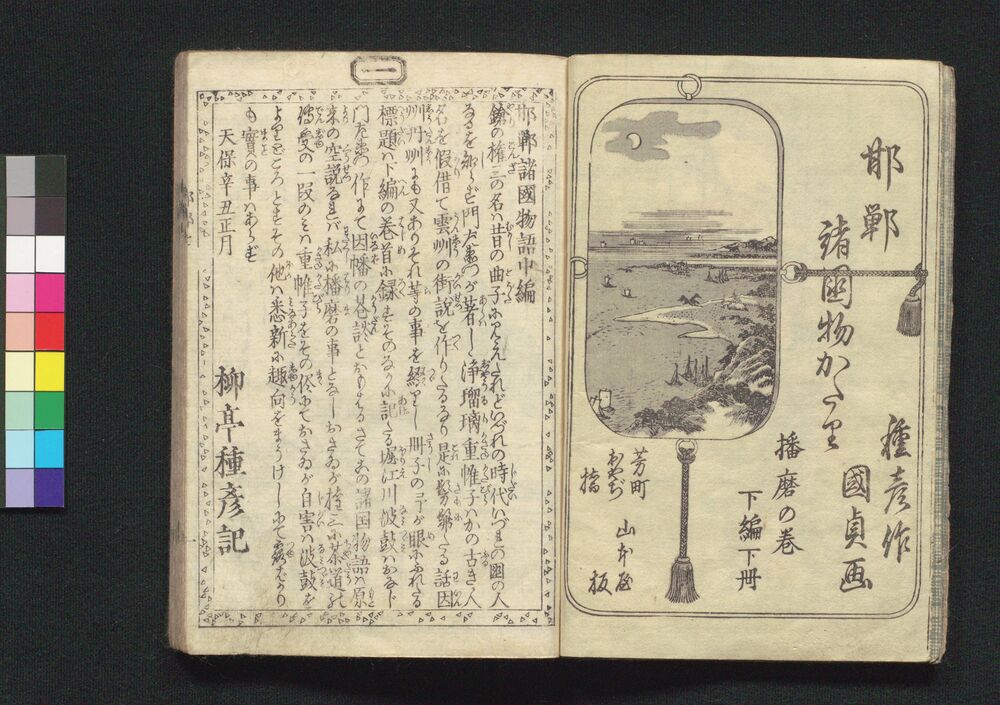 邯鄲
諸国物かたり
種彦作
國貞画
播磨の巻
下編下冊
芳町
おやぢ
橋
山本屋
板
一
邯鄲諸國物語中編
鎗の権三の名ハ昔の曲子に見えたれどいづれの時代いづれの国の人
なるを知らず門左衛門が著しゝ浄瑠璃重帷子ハかの古き人
名を假借て雲州の街説を作りたるなり是に髣髴たる話因
州丹州にも又ありそれ等の事を綴りし冊子の予が眼にふれたる
標題ハ下編の巻首に録すそのなかに記たる堀江川波鼓ハおなじ
門左衛門の作にて因幡の巷談とおもはるさてこの諸国物語ハ原
来の空説なれバ私に播磨の事となしおさゐが権三に茶道の
傳受の一段のみハ重帷子をその侭にておさゐが自害ハ波鼓を
よりどころとすその他ハ悉新に趣向をまうけしにて露ばかり
も實の事ハあらず
天保辛丑正月
柳亭種彦記